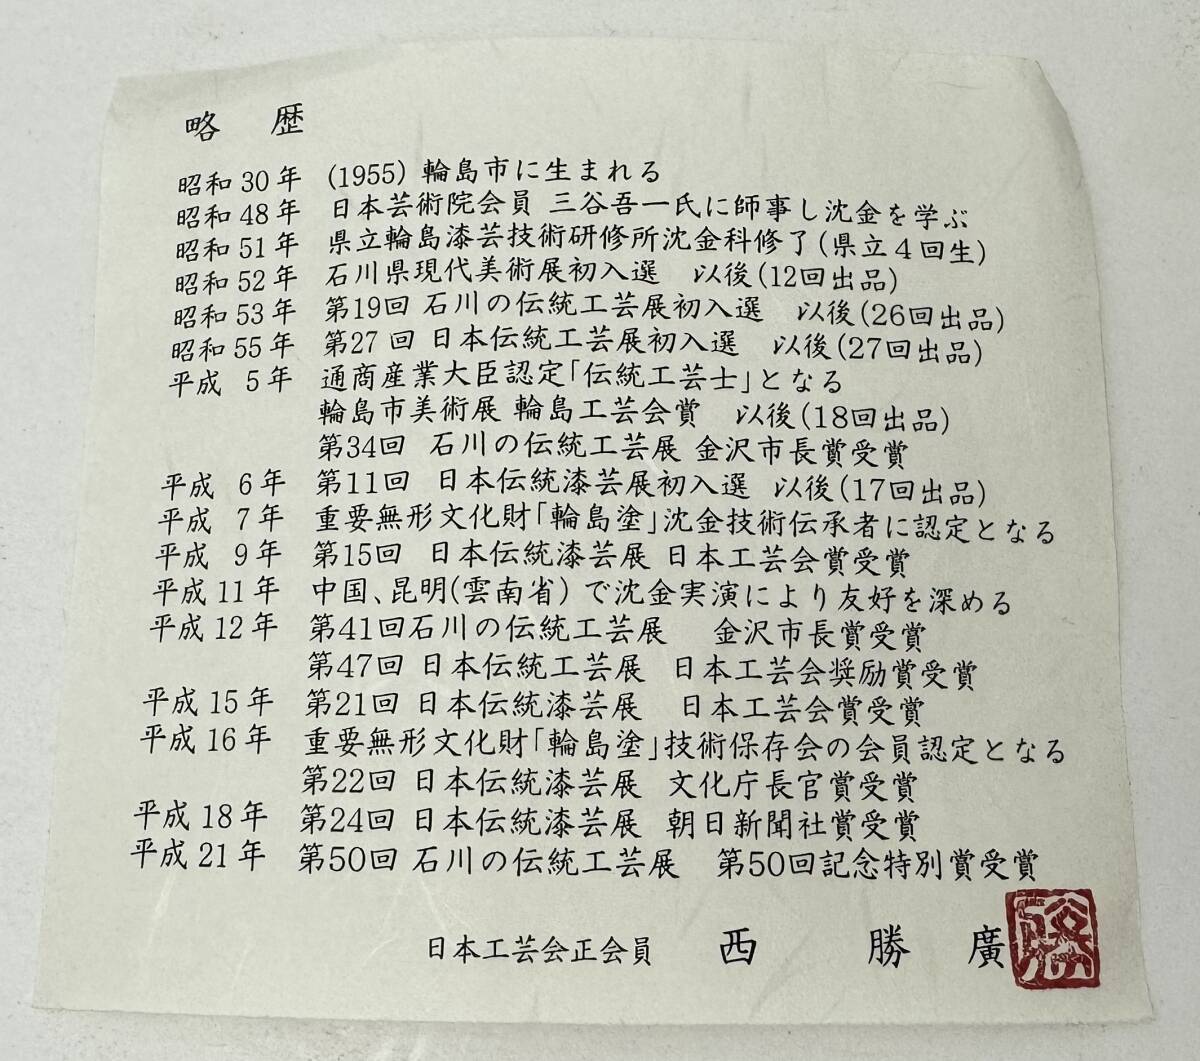 略 歴
昭和30年 (1955) 輪島市に生まれる
昭和48年 日本芸術院会員 三谷吾一氏に師事し沈金を学ぶ
昭和51年 県立輪島漆芸技術研修所沈金科修了(県立4回生)
昭和52年 石川県現代美術展初入選 以後(12回出品)
昭和53年 第19回 石川の伝統工芸展初入選 以後(26回出品)
昭和55年 第27回 日本伝統工芸展初入選 以後(27回出品)
平成 5年 通商産業大臣認定「伝統工芸士」となる
輪島市美術展 輪島工芸会賞 以後(18回出品)
第34回 石川の伝統工芸展 金沢市長賞受賞
平成 6年 第11回 日本伝統漆芸展初入選 以後(17回出品)
平成 7年 重要無形文化財「輪島塗」沈金技術伝承者に認定となる
平成 9年 第15回 日本伝統漆芸展 日本工芸会賞受賞
平成11年 中国、昆明(雲南省)で沈金実演により友好を深める
平成12年 第41回石川の伝統工芸展 金沢市長賞受賞
第47回 日本伝統工芸展 日本工芸会奨励賞受賞
平成15年 第21回 日本伝統漆芸展 日本工芸会賞受賞
平成16年 重要無形文化財「輪島塗」技術保存会の会員認定となる
第22回 日本伝統漆芸展 文化庁長官賞受賞
平成18年 第24回 日本伝統漆芸展 朝日新聞社賞受賞
平成21年 第50回 石川の伝統工芸展 第50回記念特別賞受賞
日本工芸会正会員 西 勝廣